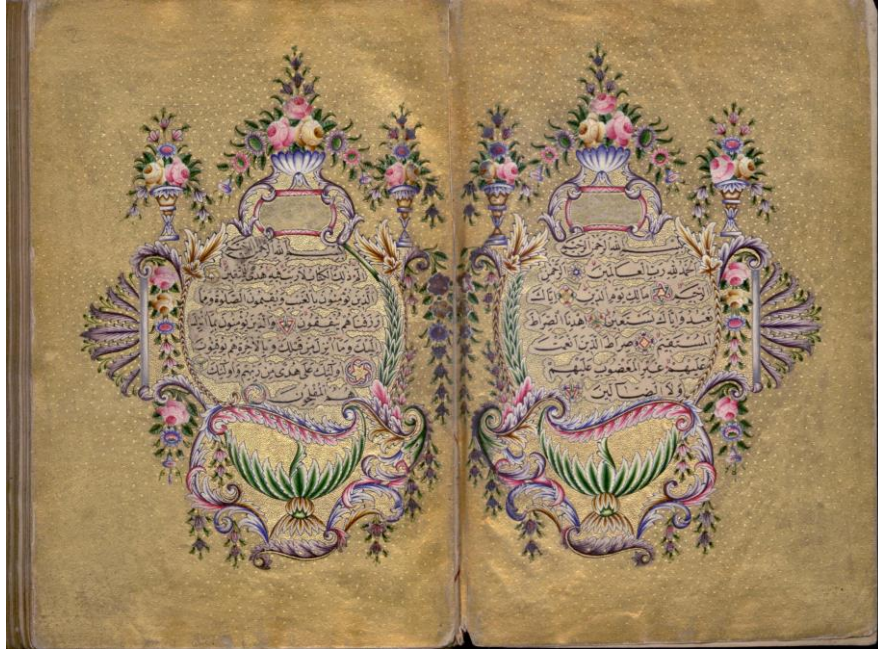 بسم الله الرحمن الرحيم
الحمد لله رب العالمين الرحمن
الرحيم مالك يوم الدين اياك
نعبد واياك نستعين اهدنا الصراط
المستقيم صراط الذين انعمت
عليهم غير المغضوب عليهم
ولا الضالين
بسم الله الرحمن الرحيم
الم ذلك الكتاب لا ريب فيه هدى للمتقين
الذين يؤمنون بالغيب ويقيمون الصلوة ومما
رزقناهم ينفقون والذين يؤمنون بما انزل
اليك وما انزل من قبلك وبالاخرة هم يوقنون
اولئك على هدى من ربهم واولئك
هم المفلحون